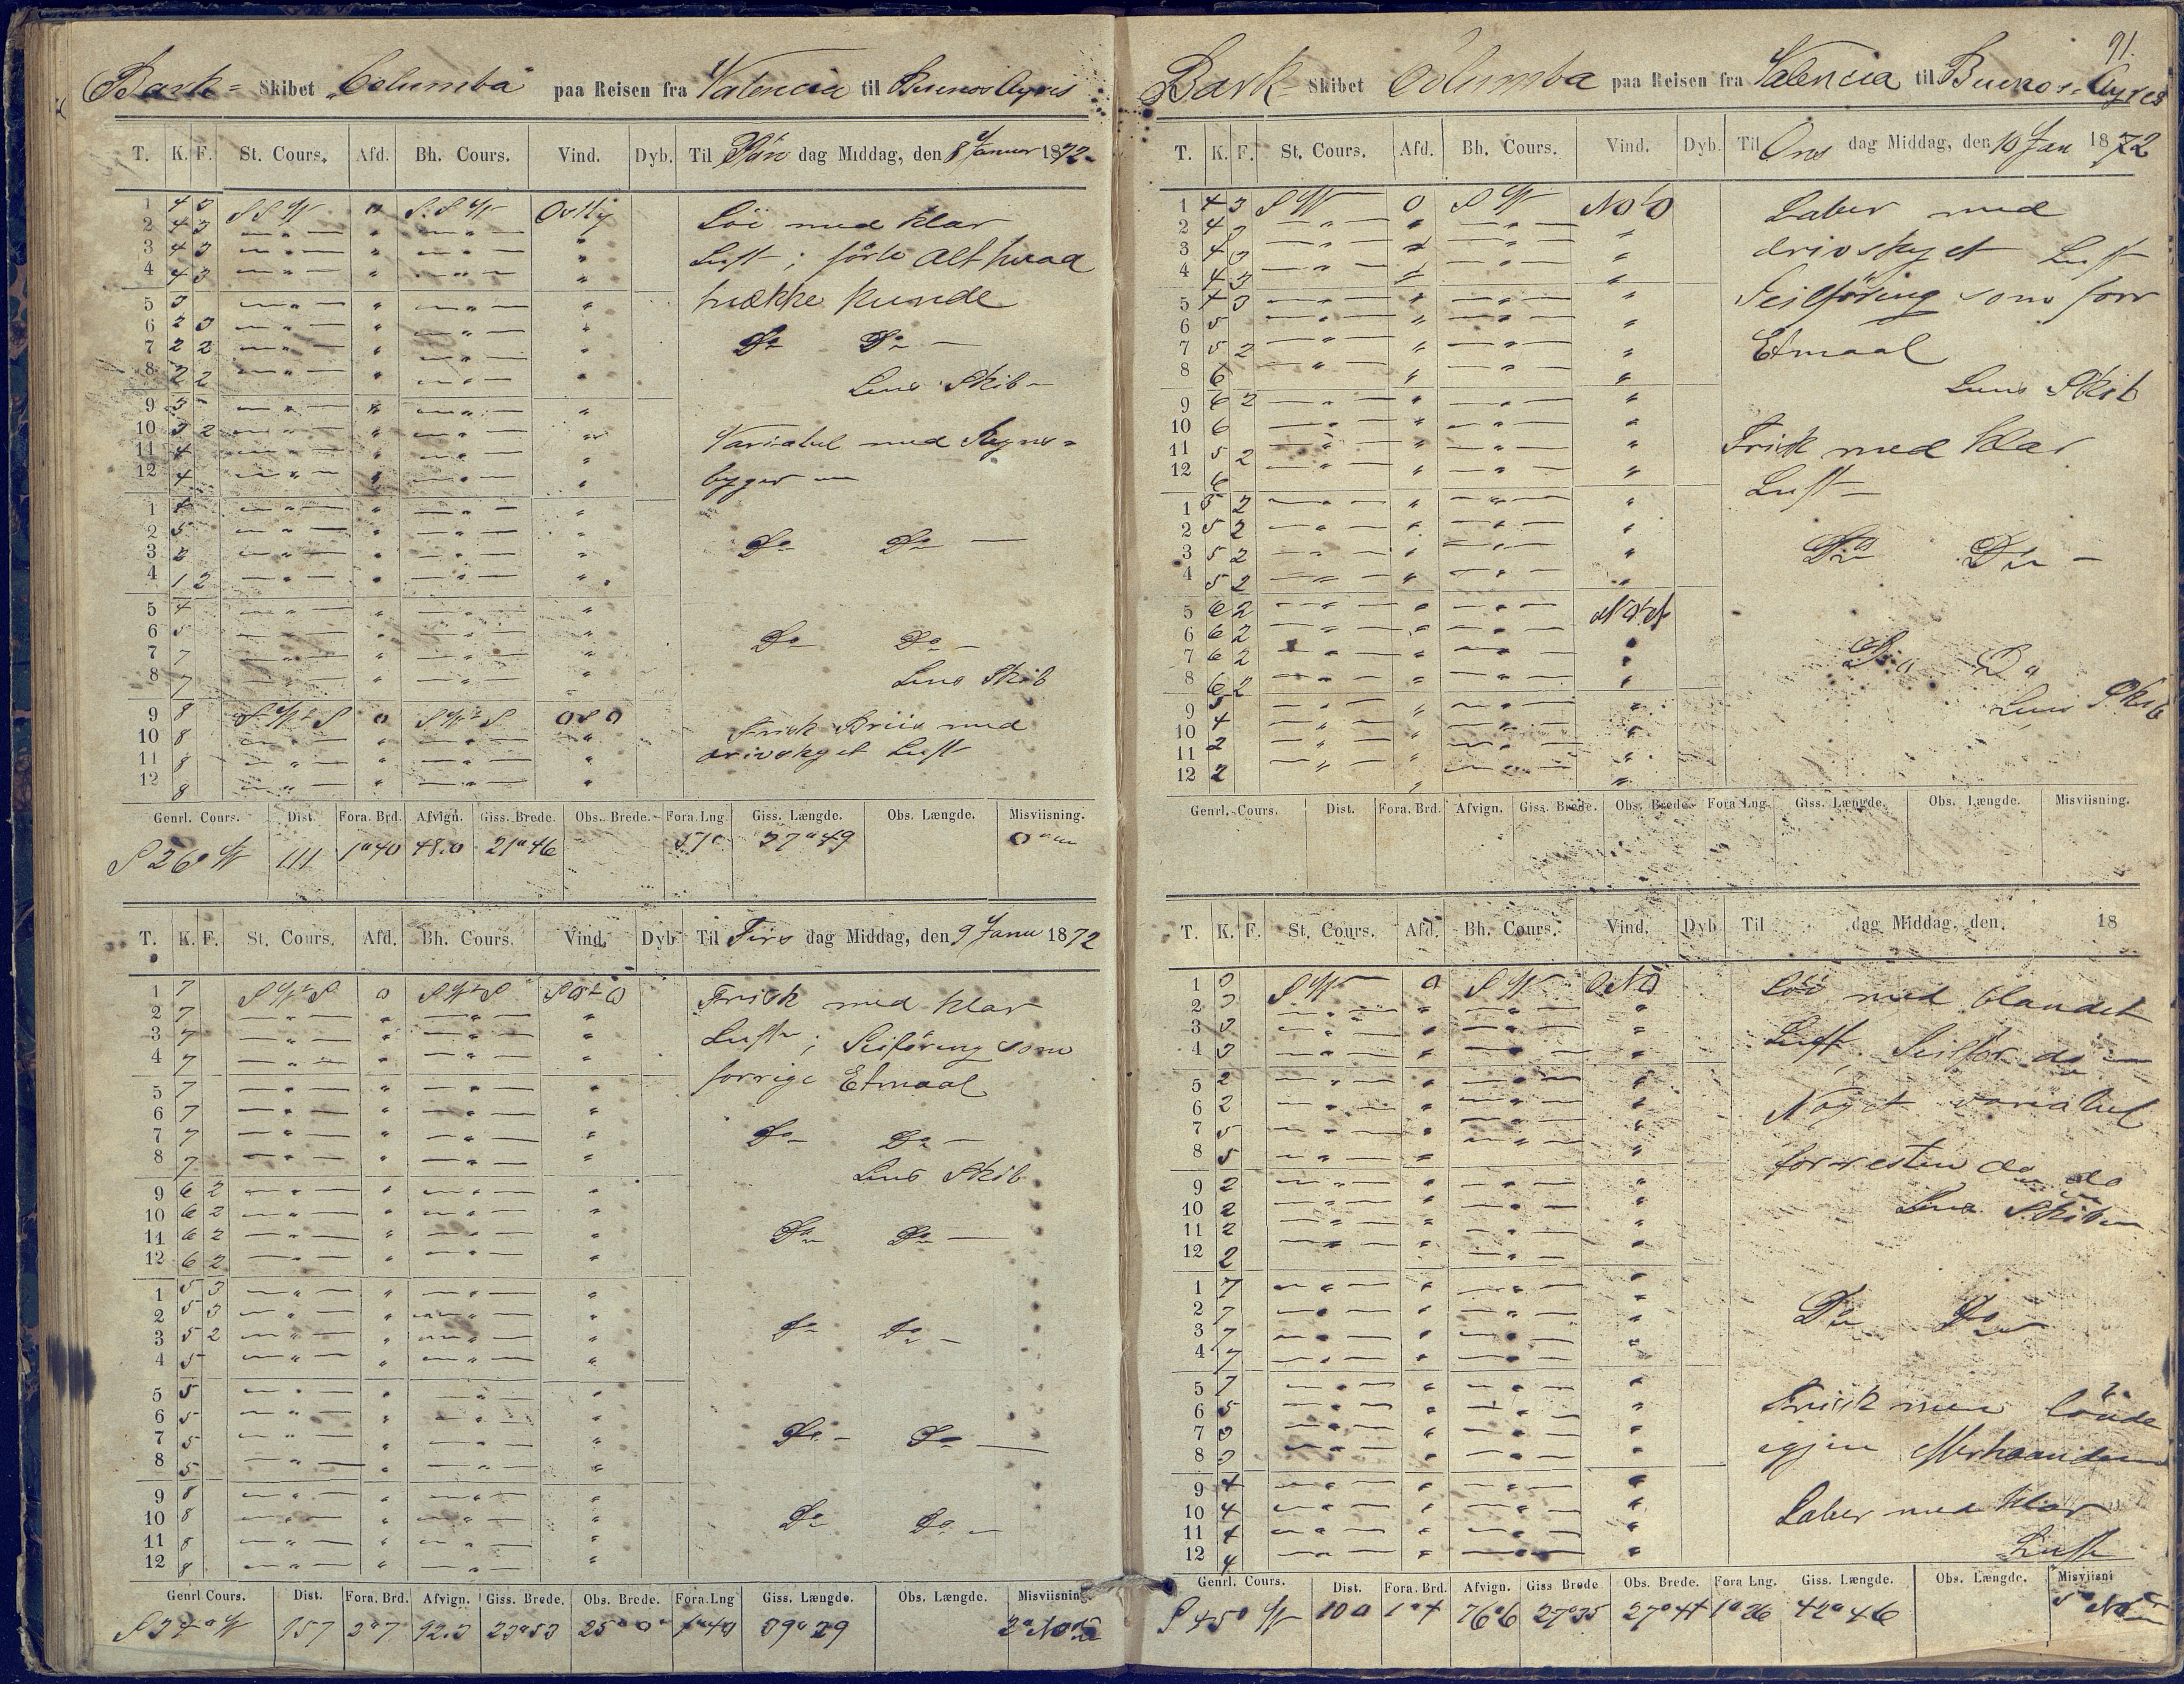 Bark= Skibet "Columba" paa Reisen fra Valencia til Buenos Ayres
T. K. F. St. Cours. Afd. Bh. Cours. Vind. Dyb. Til dag Middag, den 8 Januar 1872
1 4 3 SSW 0 S.SW Ostlig
2 4 3
3 4 3
4 4 3
5 3
6 2 3
7 2 2
8 2 2
9 3
10 3 2
11 4
12 4
1 4
2 5
3 2
4 1 2
5 4
6 5
7 7
8 7
9 8 SWzS 0 SWzS OSO
10 8
11 8
12 8
Löi med klar
Luft; förte Alt hvad
trække kunde
Do Do
Lens Skib
Variabel med Regns=
byger
Do Do
Do Do
Lens Skib
Frisk Briis med
drivskyet Luft
Genrl. Cours. Dist. Fora. Brd. Afvign. Giss. Brede. Obs. Brede. Fora. Lng. Giss. Længde. Obs. Længde. Misviisning.
S 26° W 111 1°40 48.0 21°46 37°49
T. K. F. St. Cours. Afd. Bh. Cours. Vind. Dyb. Til Tirs dag Middag, den 9 Janu 1872
1 7 SWzS 0 SWzS SOzO
2 7
3 7
4 7
5 7
6 7
7 7
8 7
9 6 2
10 6 2
11 6 2
12 6 2
1 5 3
2 5 3
3 5 2
4 5
5 5
6 5
7 5
8 5
9 8
10 8
11 8
12 8
Frisk med klar
Luft; Seilföring som
forrige Etmaal
Do Do
Lens Skib
Do Do
Do Do
Do Do
Do Do
Genrl Cours. Dist. Fora. Brd. Afvign. Giss. Brede. Obs. Brede. Fora. Lng Giss. Længde. Obs. Længde. Misviisning
S 34° W 157 92.3 23°53 25°0 1°40 39°29
91.
Bark Skibet Columba paa Reisen fra Valencia til Buenos=Ayres
T. K. F. St. Cours. Afd. Bh. Cours. Vind. Dyb. Til Ons dag Middag, den 10 Jan 1872
1 4 3 SW 0 SW NOtO
2 4 3
3 4 3
4 4 3
5 4 3
6 5
7 5 2
8 6
9 6 2
10 6
11 5 2
12 6
1 5 2
2 5 2
3 5 2
4 5 2
5 6 2
6 6 2
7 6 2
8 6 2
9 5
10 4
11 2
12 2
Laber med
drivskyet Luft
Seilföring som forr
Etmaal
Lens Skib
Frisk med klar
Luft
Do Do
Do Do
Lens Skib
Genrl. Cours. Dist. Fora. Brd. Afvign. Giss. Brede. Obs. Brede. Fora Lng. Giss. Længde. Obs. Længde. Misviisning.
T. K. F. St. Cours. Afd. Bh. Cours. Vind. Dyb. Til dag Middag, den. 18
1 3 SW 0 SW ONO
2 3
3 3
4 3
5 2
6 2
7 5
8 5
9 2
10 2
11 2
12 2
1 7
2 7
3 7
4 7
5 7
6 5
7 3
8 3
9 4
10 4
11 4
12 4
Löi med blandet
Luft, Seilför do
Noget variabel
forresten do do
Lens Skib
Do Do
Frisk men löiede
igjen efterhaanden
Laber med klar
Luft
Genrl. Cours. Dist. Fora. Brd. Afvign. Giss Brede Obs. Brede. Fora Lng. Giss. Længde. Obs. Længde. Misviisni
S 45° W 100 1°4 76.6 27°35 27°44 1°26 42°46